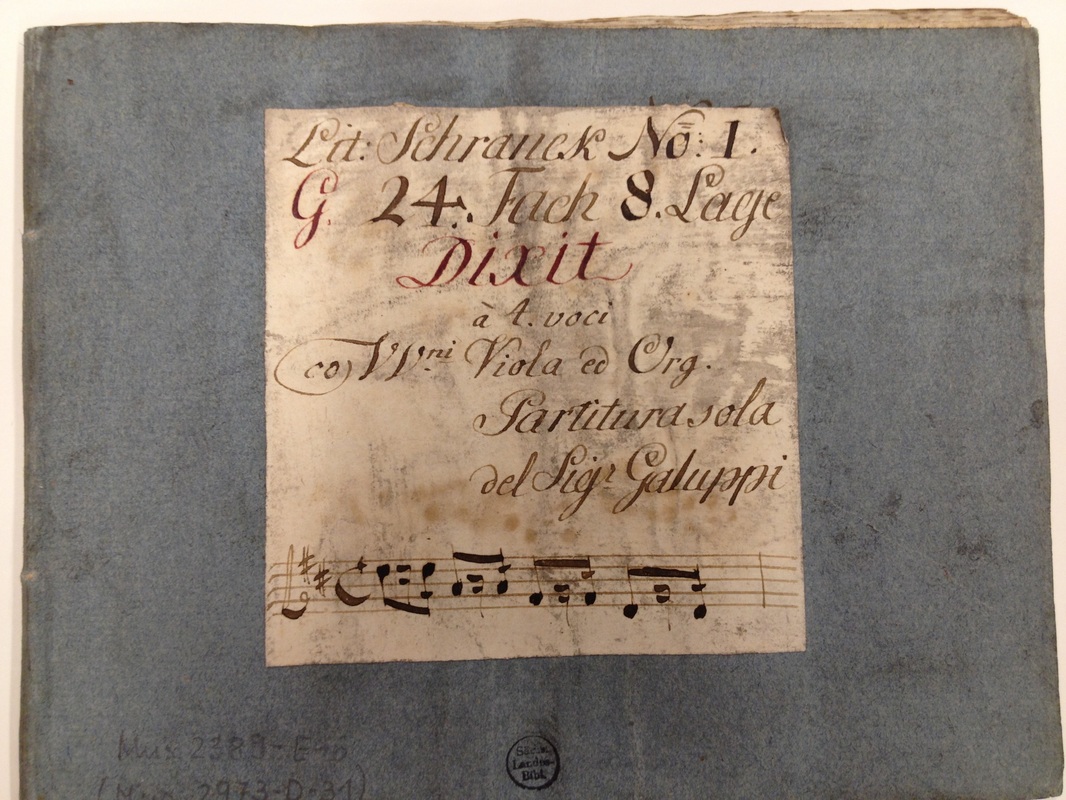 Lit: Schranck No: 1.
G. 24. Fach 8. Lage
Dixit
à 4. voci
co VV.ni Viola ed Org.
Partitura sola
del Sigr Galuppi
Mus. 2389-E-
(Mus. 2973-D-31)
Sächs.
Landes-
Bibl.